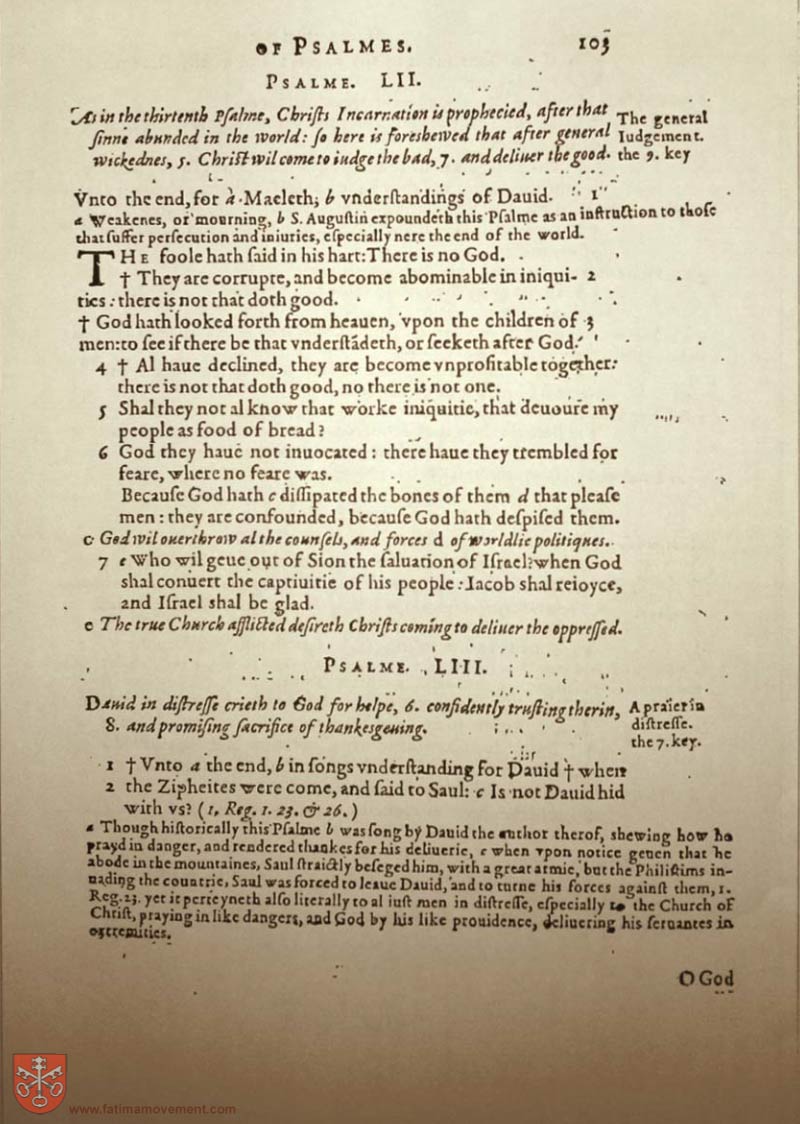 OF PSALMES. 103
PSALME. LII.
As in the thirtenth Psalme, Christs Incarnation is prophecied, after that
sinne abunded in the world: so here is foreshewed that after general
wickednes, 5. Christ wil come to iudge the bad, 7. and deliuer the good.
The general
Iudgement.
the 9. key
Vnto the end, for a Maeleth, b vnderstandings of Dauid. 1
a Weakenes, or mourning, b S. Augustin expoundeth this Psalme as an instruction to those
that suffer persecution and iniuries, especially nere the end of the world.
THE foole hath said in his hart: There is no God.
† They are corrupte, and become abominable in iniqui- 2
ties: there is not that doth good.
† God hath looked forth from heauen, vpon the children of 3
men: to see if there be that vnderstãdeth, or seeketh after God.
4 † Al haue declined, they are become vnprofitable together:
there is not that doth good, no there is not one.
5 Shal they not al know that worke iniquitie, that deuoure my
people as food of bread?
6 God they haue not inuocated: there haue they trembled for
feare, where no feare was.
Because God hath c dissipated the bones of them d that please
men: they are confounded, because God hath despised them.
c God wil ouerthrow al the counsels, and forces d of worldlie politiques.
7 e Who wil geue out of Sion the saluation of Israel? when God
shal conuert the captiuitie of his people: Iacob shal reioyce,
and Israel shal be glad.
e The true Church afflicted desireth Christs coming to deliuer the oppressed.
PSALME. LIII.
Dauid in distresse crieth to God for helpe, 6. confidently trusting therin,
8. and promising sacrifice of thankesgeuing.
A praier in
distresse.
the 7. key.
1 † Vnto a the end, b in songs vnderstanding for Dauid † when
2 the Zipheites were come, and said to Saul: c Is not Dauid hid
with vs? (1. Reg. 1. 23. & 26.)
a Though historically this Psalme b was song by Dauid the author therof, shewing how he
prayd in danger, and rendered thankes for his deliuerie, c when vpon notice geuen that he
abode in the mountaines, Saul straictly beseged him, with a great armie, but the Philistims in-
uading the countrie, Saul was forced to leaue Dauid, and to turne his forces against them, 1.
Reg. 23. yet it perteyneth also literally to al iust men in distresse, especially to the Church of
Christ, praying in like dangers, and God by his like prouidence, deliuering his seruantes in
extremities.
O God
www.fatimamovement.com